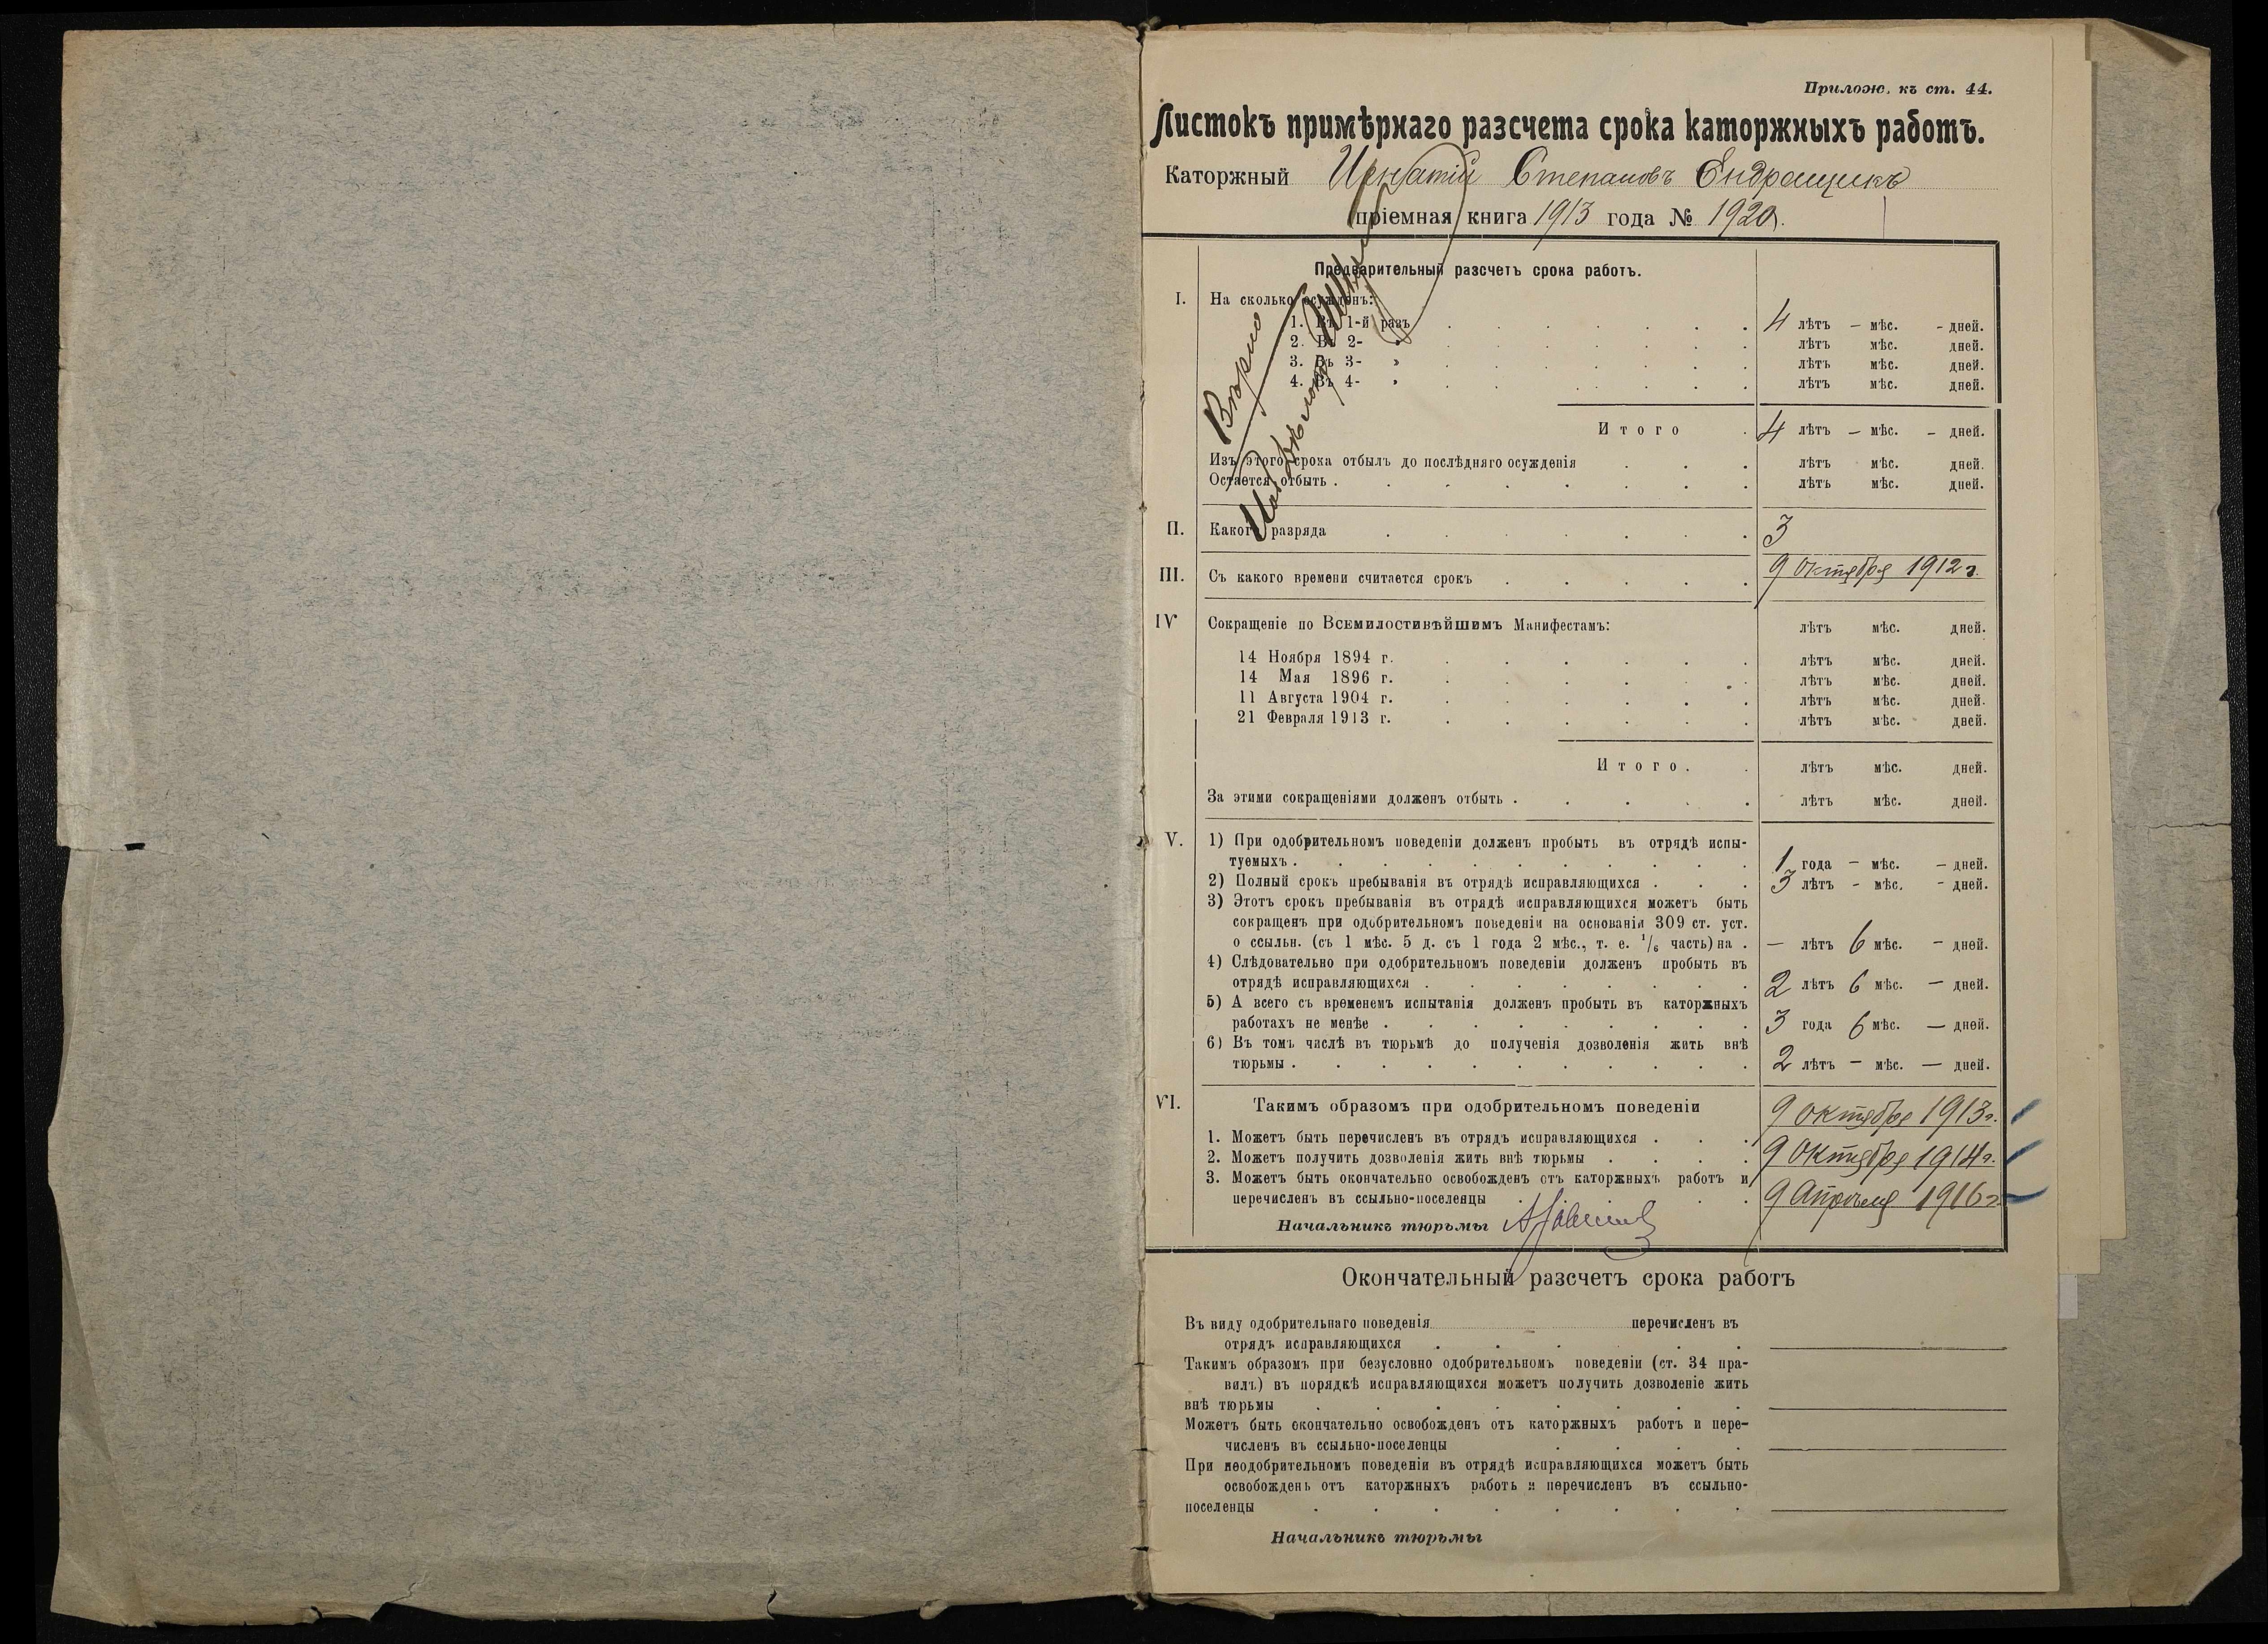 Прилож. къ ст. 44.
Листокъ примѣрнаго разсчета срока каторжныхъ работъ.
Каторжный Игнатій Степановъ Ендращикъ
пріемная книга 1913 года № 1920.
Предварительный разсчетъ срока работъ.
I. На сколько осужденъ:
1. Въ 1-й разъ . . . . . . . 4 лѣтъ — мѣс. - дней.
2. Въ 2- » . . . . . . . лѣтъ мѣс. дней.
3. Въ 3- » . . . . . . . лѣтъ мѣс. дней.
4. Въ 4- » . . . . . . . лѣтъ мѣс. дней.
Вѣрно
Итого . 4 лѣтъ — мѣс. - дней.
Изъ этого срока отбылъ до послѣдняго осужденія . . . лѣтъ мѣс. дней.
Остается отбыть . . . . . . . . лѣтъ мѣс. дней.
II. Какого разряда . . . . . . . 3
III. Съ какого времени считается срокъ . . . . . 9 Октября 1912 г.
IV Сокращеніе по Всемилостивѣйшимъ Манифестамъ: лѣтъ мѣс. дней.
14 Ноября 1894 г. . . . . . . лѣтъ мѣс. дней.
14 Мая 1896 г. . . . . . . лѣтъ мѣс. дней.
11 Августа 1904 г. . . . . . . лѣтъ мѣс. дней.
21 Февраля 1913 г. . . . . . . лѣтъ мѣс. дней.
Итого. . лѣтъ мѣс. дней.
За этими сокращеніями долженъ отбыть . . . . . лѣтъ мѣс. дней.
V. 1) При одобрительномъ поведеніи долженъ пробыть въ отрядѣ испы-
туемыхъ . . . . . . . . . . . 1 года — мѣс. — дней.
2) Полный срокъ пребыванія въ отрядѣ исправляющихся . . . 3 лѣтъ - мѣс. - дней.
3) Этотъ срокъ пребыванія въ отрядѣ исправляющихся можетъ быть
сокращенъ при одобрительномъ поведеніи на основаніи 309 ст. уст.
о ссыльн. (съ 1 мѣс. 5 д. съ 1 года 2 мѣс., т. е. 1/6 часть) на . — лѣтъ 6 мѣс. — дней.
4) Слѣдовательно при одобрительномъ поведеніи долженъ пробыть въ
отрядѣ исправляющихся . . . . . . . . 2 лѣтъ 6 мѣс. — дней.
5) А всего съ временемъ испытанія долженъ пробыть въ каторжныхъ
работахъ не менѣе . . . . . . . . . 3 года 6 мѣс. — дней.
6) Въ томъ числѣ въ тюрьмѣ до полученія дозволенія жить внѣ
тюрьмы . . . . . . . . . . . 2 лѣтъ — мѣс. — дней.
VI. Такимъ образомъ при одобрительномъ поведеніи
1. Можетъ быть перечисленъ въ отрядъ исправляющихся . . . 9 октября 1913 г.
2. Можетъ получить дозволенія жить внѣ тюрьмы . . . . 9 Октября 1914 г.
3. Можетъ быть окончательно освобожденъ отъ каторжныхъ работъ и
перечисленъ въ ссыльно-поселенцы . . . . . 9 Апрѣля 1916 г.
Начальникъ тюрьмы
Окончательный разсчетъ срока работъ
Въ виду одобрительнаго поведенія перечисленъ въ
отрядъ исправляющихся . . . . . .
Такимъ образомъ при безусловно одобрительномъ поведеніи (ст. 34 пра-
вилъ) въ порядкѣ исправляющихся можетъ получить дозволеніе жить
внѣ тюрьмы . . . . . . . .
Можетъ быть окончательно освобожденъ отъ каторжныхъ работъ и пере-
численъ въ ссыльно-поселенцы . . . .
При неодобрительномъ поведеніи въ отрядѣ исправляющихся можетъ быть
освобожденъ отъ каторжныхъ работъ и перечисленъ въ ссыльно-
поселенцы . . . . . . . .
Начальникъ тюрьмы